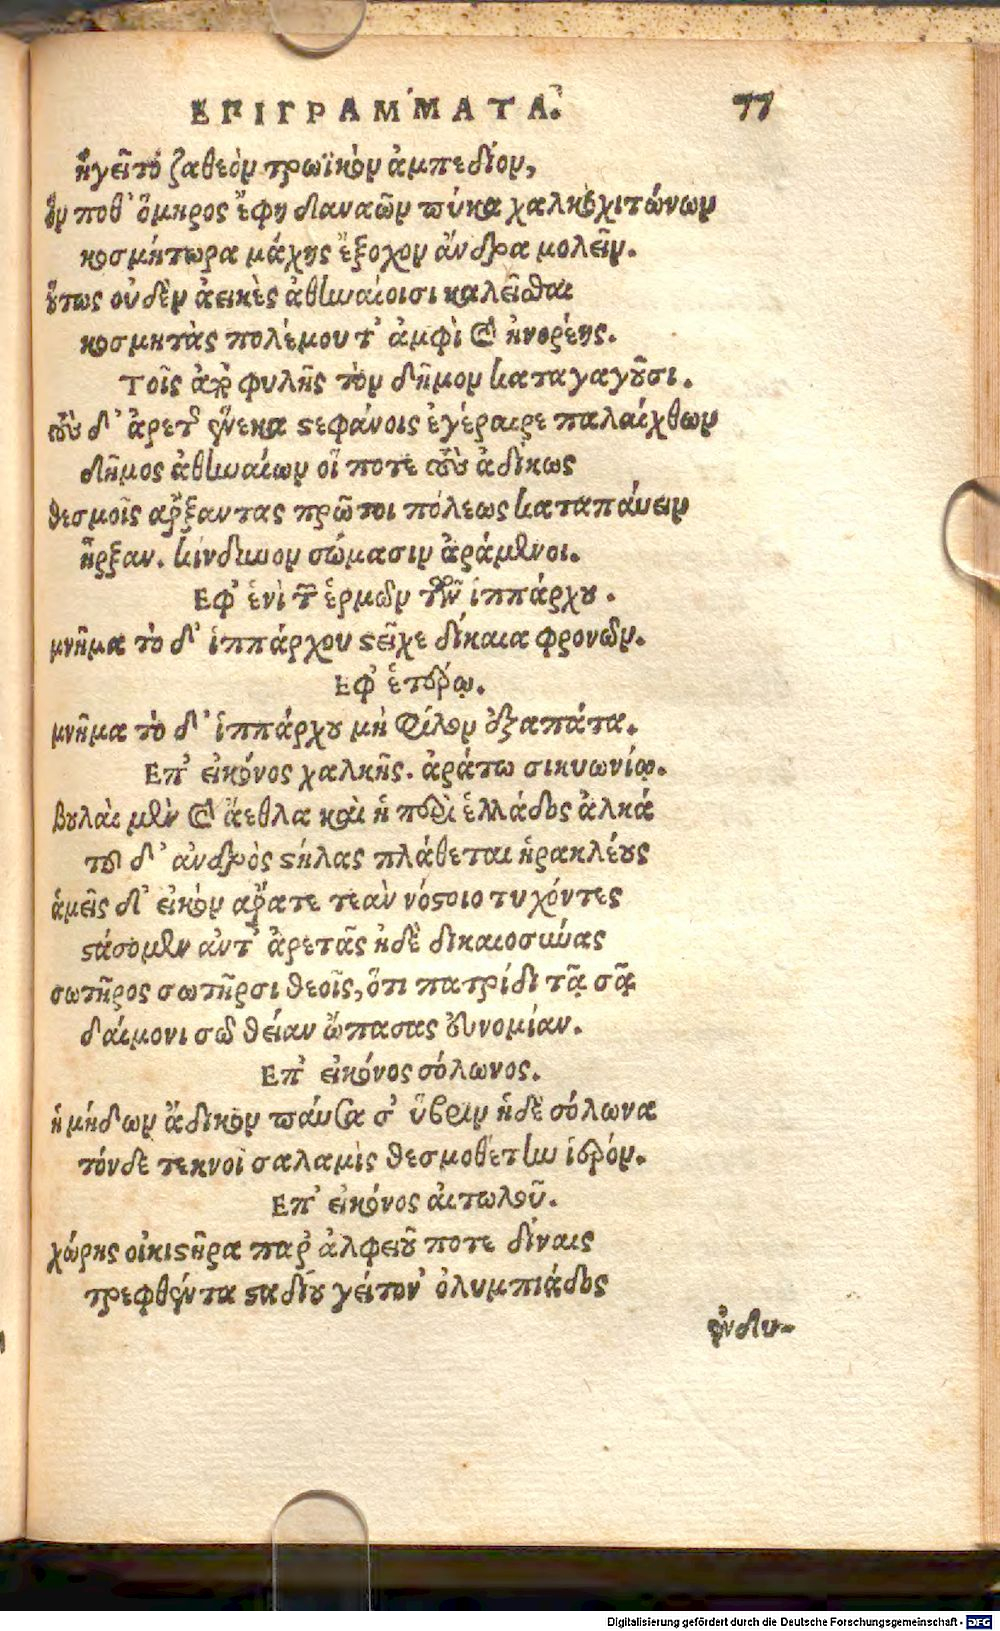 ΕΠΙΓΡΑΜΜΑΤΑ. 77
ἡγεῖτο ζαθεὸν τρωϊκὸν ἀμπεδίον,
ὅν ποθ' ὅμηρος ἔφη δαναῶν πύκα χαλκοχιτώνων
κοσμήτωρα μάχης ἔξοχον ἄνδρα μολεῖν.
οὕτως οὐδὲν ἀεικὲς ἀθηναίοισι καλεῖσθαι
κοσμητὰς πολέμου τ' ἀμφὶ καὶ ἠνορέης.
Τοῖς ἀπὸ φυλῆς τὸν δῆμον καταγαγοῦσι.
τούσδ' ἀρετῆς ἕνεκα στεφάνοις ἐγέραιρε παλαίχθων
δῆμος ἀθηναίων οἵ ποτε τοὺς ἀδίκως
θεσμοῖς ἄρξαντας πρῶτοι πόλεως καταπάυειν
ἦρξαν. κίνδυνον σώμασιν ἀράμενοι.
Εφ' ἑνὶ τῶν ἑρμῶν τῶν ἱππάρχου.
μνῆμα τὸ δ' ἱππάρχου στεῖχε δίκαια φρονῶν.
Εφ' ἑτέρῳ.
μνῆμα τὸ δ' ἱππάρχου μὴ φίλον ἐξαπάτα.
Επ' εἰκόνος χαλκῆς. ἀράτω σικυωνίῳ.
βουλαὶ μὲν καὶ ἄεθλα καὶ ἡ περὶ ἑλλάδος ἀλκά
τοῦ δ' ἀνδρὸς στήλας πλάθεται ἡρακλέους
ἁμεῖς δ' εἰκόν' ἄρατε τεὰν νόστοιο τυχόντες
στάσομεν ἀντ' ἀρετᾶς ἠδὲ δικαιοσύνας
σωτῆρος σωτῆρσι θεοῖς, ὅτι πατρίδι τᾷ σᾷ
δαίμονι σῶ θείαν ὤπασας εὐνομίαν.
Επ' εἰκόνος σόλωνος.
ἡ μήδων ἄδικον παύσασ' ὕβριν ἡδὲ σόλωνα
τόνδε τεκνοῖ σαλαμὶς θεσμοθέτην ἱερόν.
Επ' εἰκόνος αἰτωλοῦ.
χώρης οἰκιστῆρα παρ' ἀλφειοῦ ποτε δίναις
τρεφθέντα σταδίου γείτον' ὀλυμπιάδος
ἐνδυ-
Digitalisierung gefördert durch die Deutsche Forschungsgemeinschaft - DFG